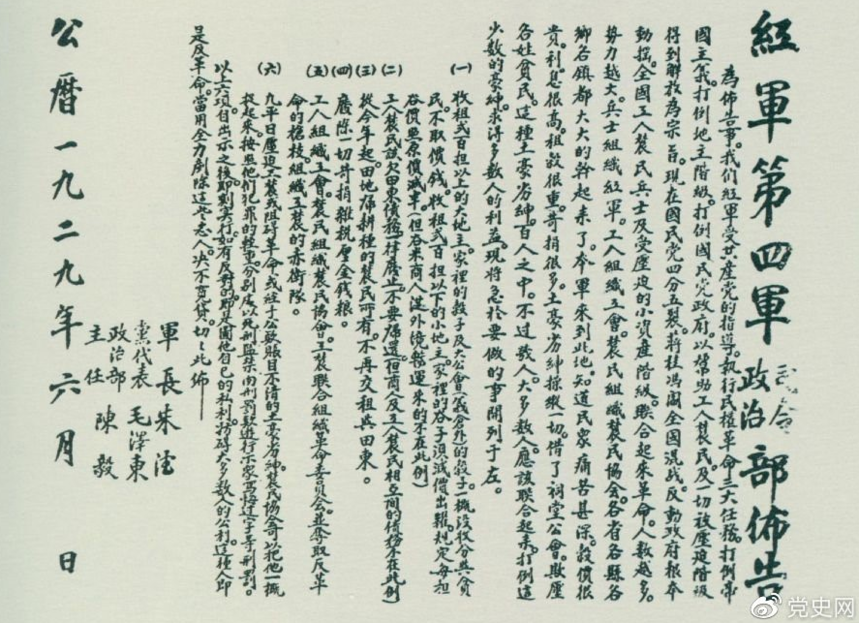 紅軍第四軍司令政治部佈告
為佈告事。我們紅軍受共產党的指導。執行民權革命三大任務。打倒帝
國主義。打倒地主階級。打倒國民党政府。以幫助工人農民及一切被壓迫階級
得到解放為宗旨。現在國民党四分五裂。蔣桂馮閻全國混战。反動政府根本
動搖。全國工人農民兵士及受壓迫的小資產階級。联合起來革命。人數越多。
势力越大。兵士組織紅軍。工人組織工會。農民組織農民協会。各省各縣各
鄉各鎮都大大的幹起來了。本軍來到此地。知道民眾痛苦甚深。穀價很
貴。利息很高。租穀很重。苛捐很多。土豪劣紳操縱一切。借了祠堂公會。欺壓
各姓貧民。這種土豪劣紳。百人之中。不过數人。大多數人。應該联合起來。打倒這
少數的豪紳。求得多數人的利益。現將急於要做的事開列于左。
(一)收租弍百担以上的大地主。家裡的穀子及大公會(義倉外)的穀子。一概沒收分與貧
民。不取價錢。收租弍百担以下的小地主。家裡的谷子。須減價出糶。規定每担
谷價照原價減半。(但谷米商人從外境整運來的不在此例)
(二)工人農民該欠田東債務。一律廢止。不要歸還。(但商人及工人農民相互間的債務不在此例)
(三)從今年起。田地歸耕種的農民所有。不再交租與田東。
(四)廢除一切苛捐雜稅厘金錢粮。
(五)工人組織工會。農民組織農民協會。工農联合組織革命委員会。並奪取反革
命的槍枝。組織工農的赤衛隊。
(六)凡平日壓迫工農。或阻碍革命。或經手公欵賬目不清的土豪劣紳。農民協會可以把他一概
捉起來。按照他們犯罪的輕重分別處以死刑監禁肉刑罰欵遊行示家寫悔过字等刑罰。
以上六項。自出示之後。即刻实行。如有反對的。即是圖他自己的私利。妨碍大多數人的公利。這種人即
是反革命。當用全力剷除這些惡人。决不寬貸。切切此佈——
軍長 朱德
黨代表 毛澤東
政治部主任 陳毅
公曆一九二九年六月 日
党史网